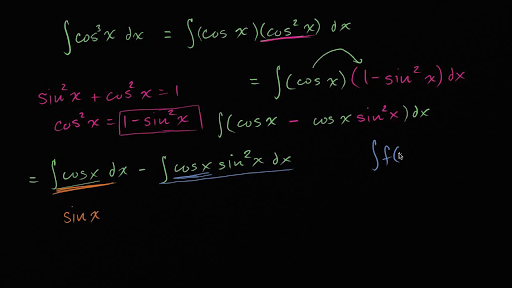 ∫cos³x dx = ∫(cos x)(cos²x) dx
= ∫(cos x)(1-sin²x)dx
sin²x + cos²x = 1
cos²x = 1-sin²x
∫(cosx - cosx sin²x)dx
= ∫cosx dx - ∫cosx sin²x dx
∫f(
sinx